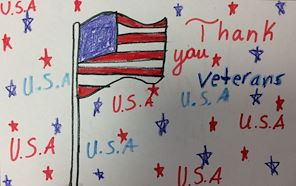 U.S.A
U.S.A
Thank
you
Veterans
U.S.A
U.S.A
U.S.A
U.S.A
U.S.A
U.S.A
U.S.A